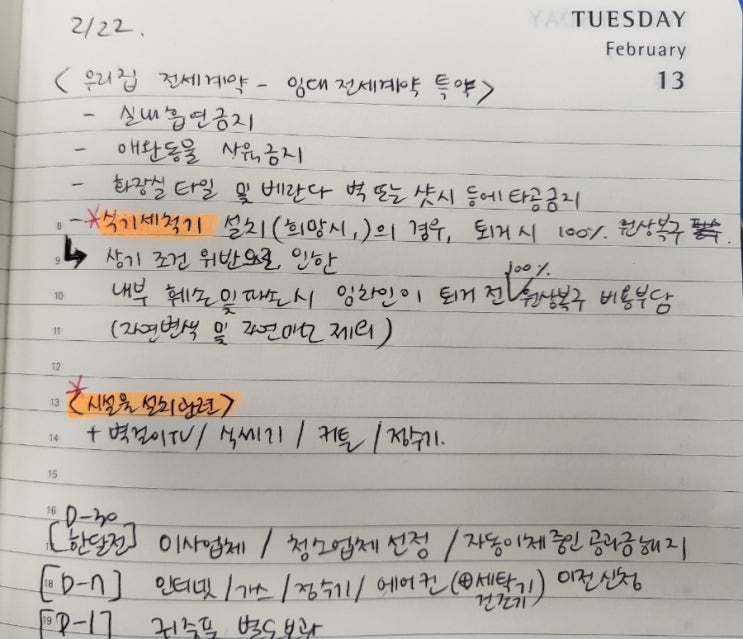 2/22.
TUESDAY
February
13
<우리집 전세계약 - 임대 전세계약 특약>
- 실내흡연금지
- 애완동물 사육금지
- 화장실 타일 및 베란다 벽 또는 샷시 등에 타공금지
8 - *식기세척기 설치(희망시,)의 경우, 퇴거시 100% 원상복구
9 상기 조건 위반으로 인한
100%
10 내부 훼손 및 파손시 임차인이 퇴거 전 원상복구 비용부담
11 (자연변색 및 자연마모 제외)
12
13 *<시설물 설치관련>
14 + 벽걸이TV / 식세기 / 커튼 / 정수기.
15
16 D-30
[한달전] 이사업체 / 청소업체 선정 / 자동이체 중인 공과금 해지
18 [D-7] 인터넷 / 가스 / 정수기 / 에어컨 (⊕세탁기 건조기) 이전신청
19 [D-1] 귀중품 별도보관